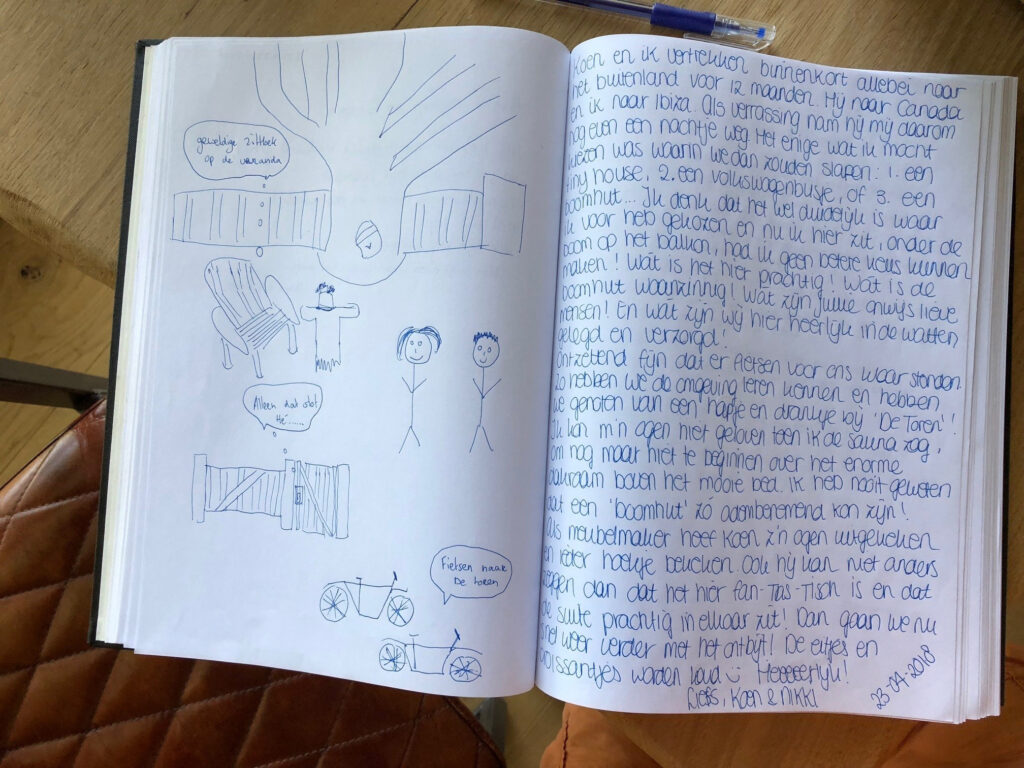 geweldige zitbek
op de veranda
Alleen dat slot
hé......
Fietsen naar
De toren
Koen en ik vertrekken binnenkort allebei naar
het buitenland voor 12 maanden. Hij naar Canada
en ik naar Ibiza. Als verrassing nam hij mij daarom
nog even een nachtje weg. Het enige wat ik mocht
kiezen was waarin we dan zouden slapen: 1. een
tiny house, 2. een volkswagenbusje, of 3. een
boomhut... Ik denk dat het wel duidelijk is waar
ik voor heb gekozen en nu ik hier zit, onder de
boom op het balkon, had ik geen betere keus kunnen
maken! Wat is het hier prachtig! Wat is de
boomhut waanzinnig! Wat zijn jullie onwijs lieve
mensen! En wat zijn wij hier heerlijk in de watten
gelegd en verzorgd!
Ontzettend fijn dat er fietsen voor ons klaar stonden.
Zo hebben we de omgeving leren kennen en hebben
we genoten van een hapje en drankje bij 'De Toren'!
Ik kon m'n ogen niet geloven toen ik de sauna zag,
om nog maar niet te beginnen over het enorme
dakraam boven het mooie bed. Ik heb nooit geweten
dat een 'boomhut' zó adembenemend kon zijn!
Als meubelmaker heeft Koen z'n ogen uitgekeken
en ieder hoekje bekeken. Ook hij kan niet anders
zeggen dan dat het hier fan-Tas-Tisch is en dat
de suite prachtig in elkaar zit! Dan gaan we nu
snel weer verder met het ontbijt! De eitjes en
croissantjes worden koud :) Heeeeerlijk!
Liefs, Koen & Nikki
23-04-2018